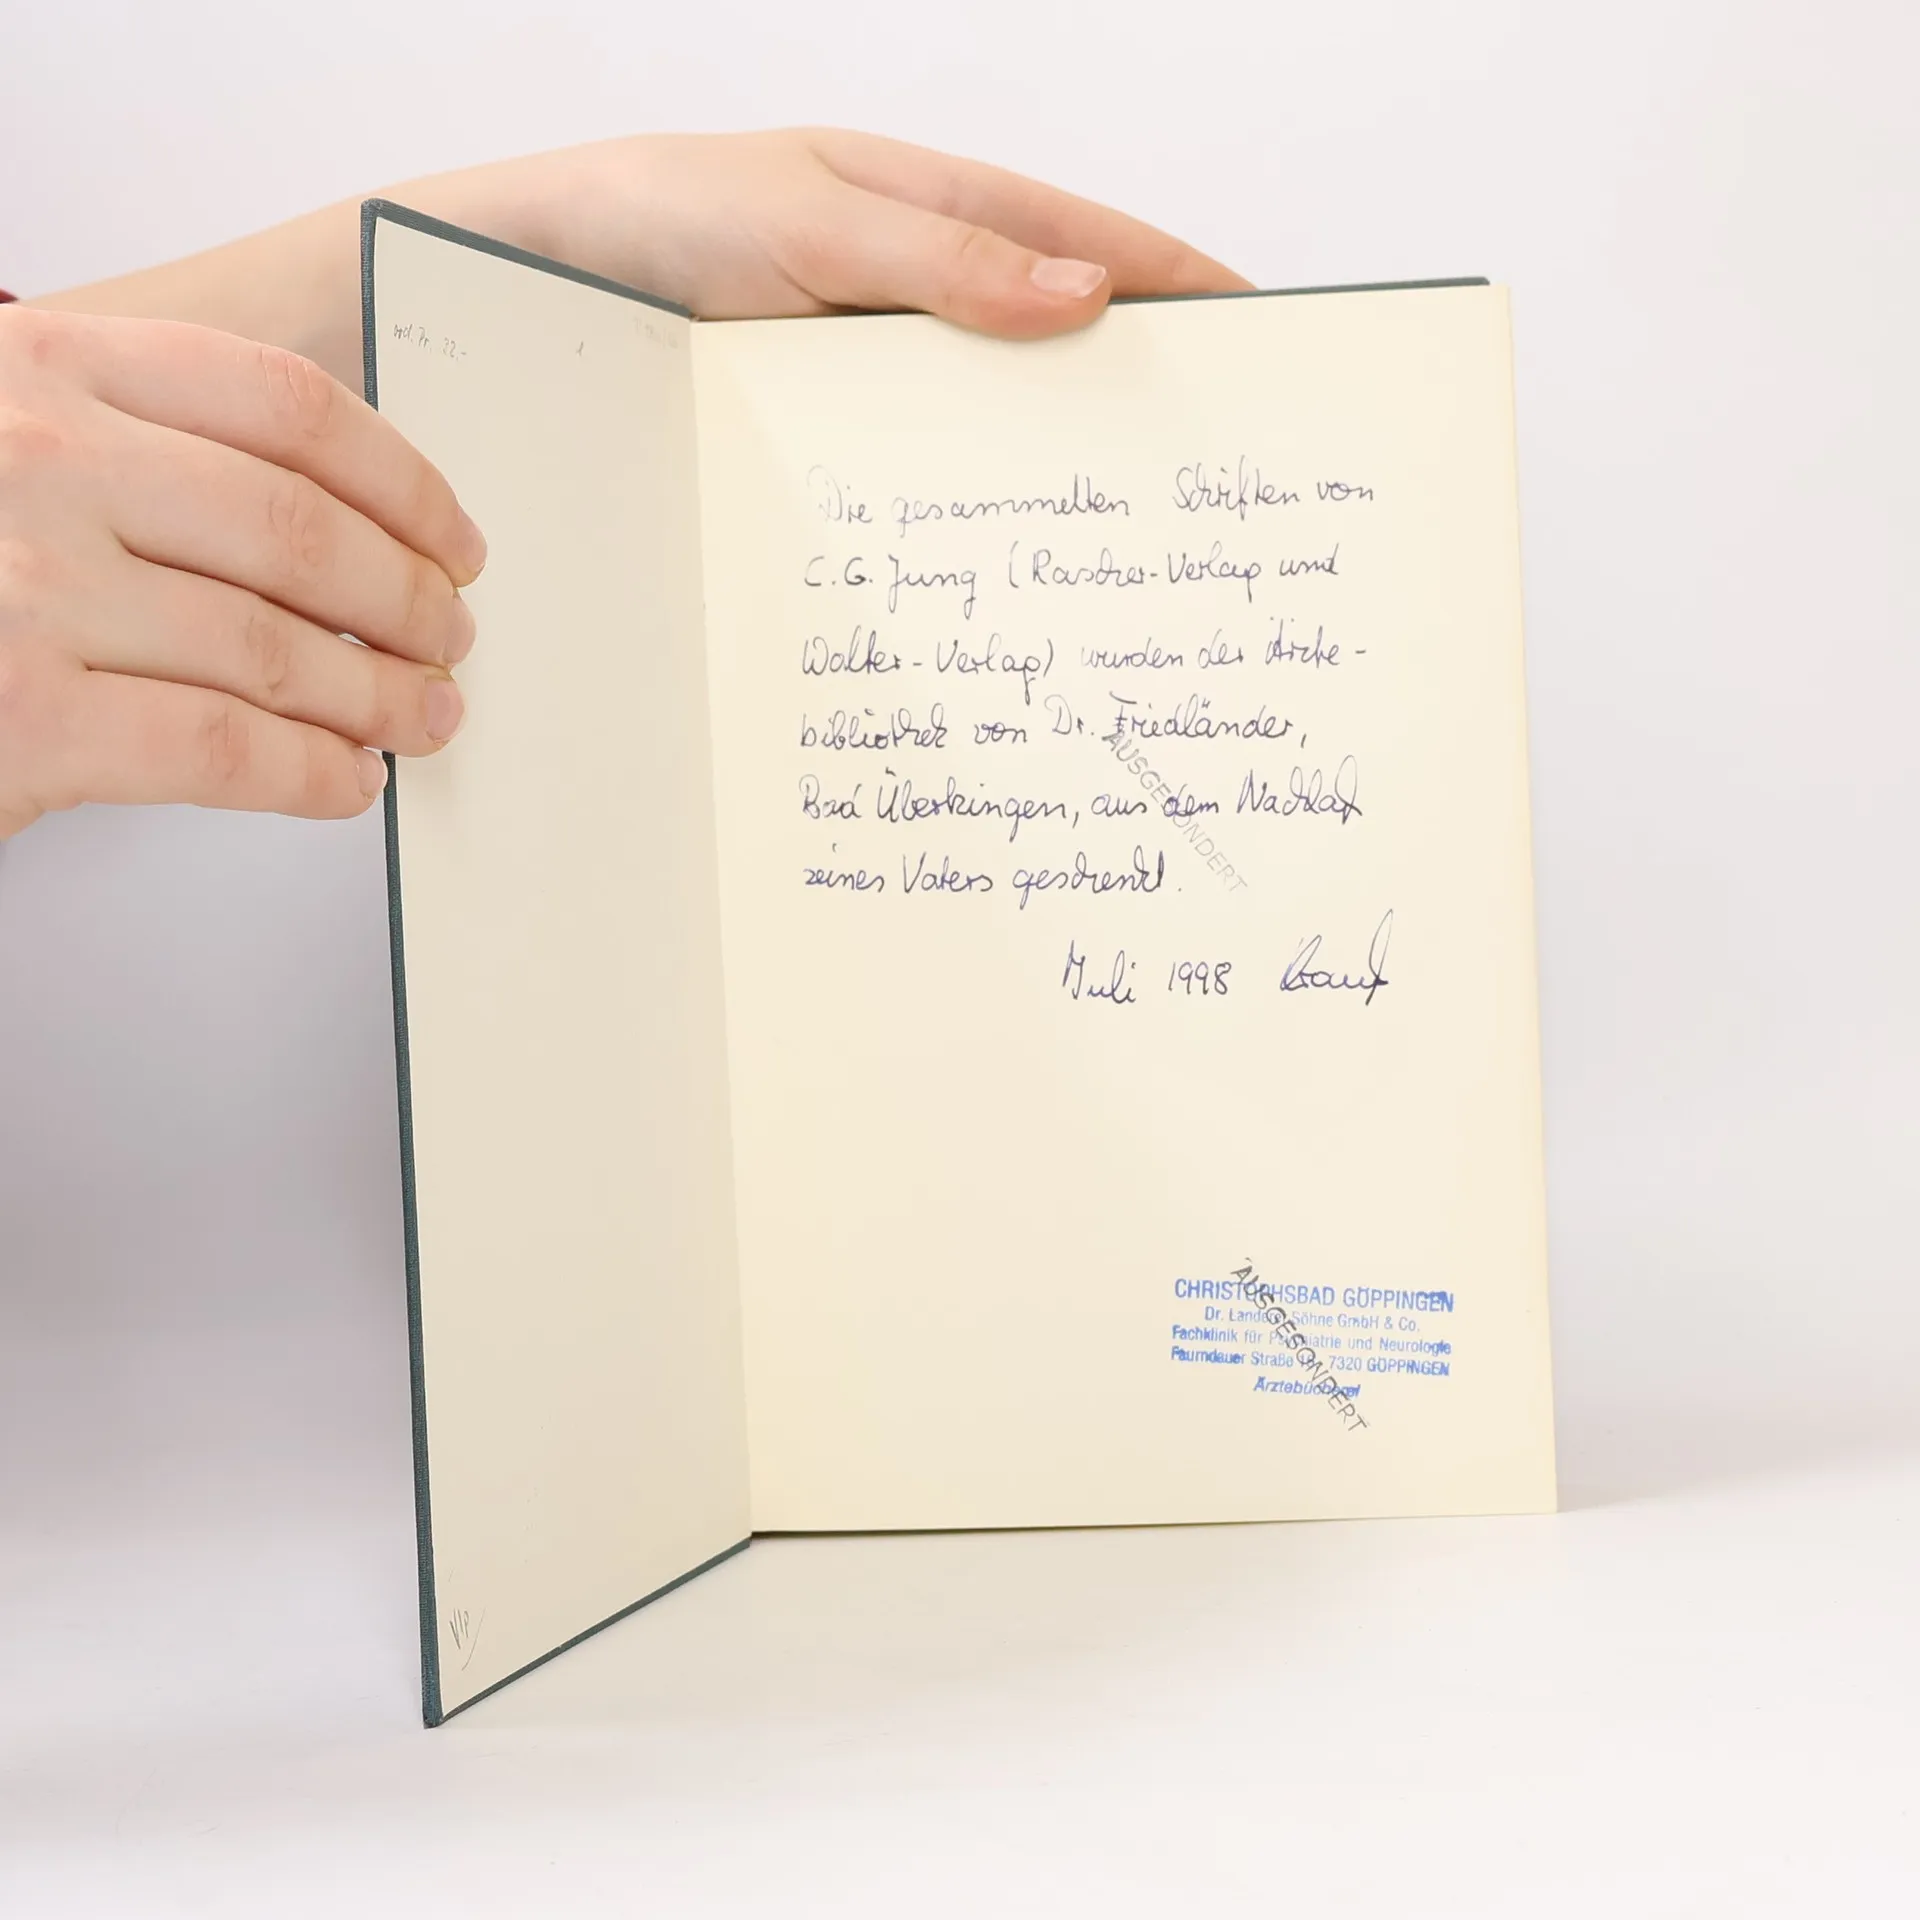 1
Die gesammelten Schriften von
C.G. Jung (Rascher-Verlag und
Walter-Verlag) wurden der Ärzte-
bibliothek von Dr. Friedländer,
Bad Überkingen, aus dem Nachlaß
seines Vaters geschenkt.
Juli 1998
AUSGESONDERT
CHRISTOPHSBAD GÖPPINGEN
Dr. Landerer Söhne GmbH & Co.
Fachklinik für Psychiatrie und Neurologie
Faurndauer Straße 7320 GÖPPINGEN
Ärztebücherei
AUSGESONDERT